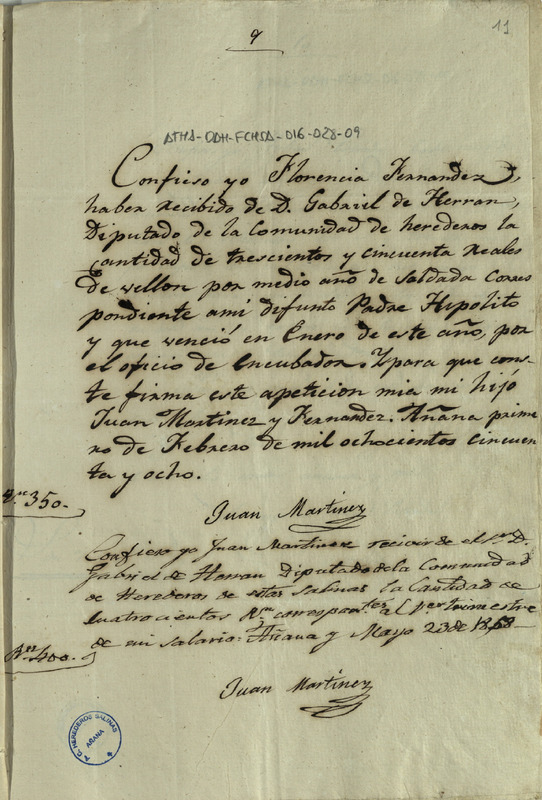 9
11
ATHA-DAH-FCHSA-016-028-09
Confieso yo Florencia Fernandez,
haber recibido de D. Gabriel de Herran,
Diputado de la Comunidad de herederos la
Cantidad de trescientos y cincuenta reales
de vellon por medio año de soldada corres
pondiente ami difunto Padre Hipolito
y que venció en Enero de este año, por
el oficio de Encubador. Y para que cons-
te firma este apeticion mia mi hijo
Juan Martinez y Fernandez. Añana prime
ro de Febrero de mil ochocientos cincuen
ta y ocho.
350.-
Juan Martinez
Confieso yo Juan Martinez recivir de el Sr. D.
Gabriel de Herran Diputado de la Comunidad
de Herederos de estas Salinas la Cantidad de
Cuatrocientos Rs. al trimestre
de mi salario: Añana y Mayo 23 de 1858
Rs. 400.
Juan Martinez
A.C. HEREDEROS SALINAS
AÑANA